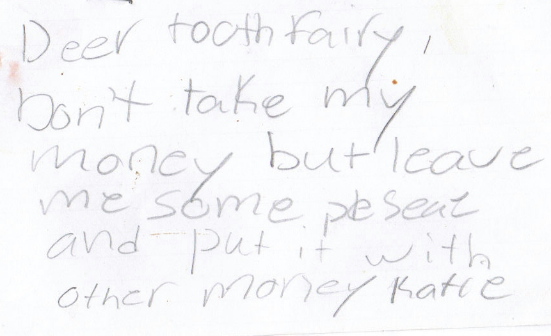 Deer tooth Fairy,
Don't take my
money but leave
me some peseat
and put it with
other money Katie